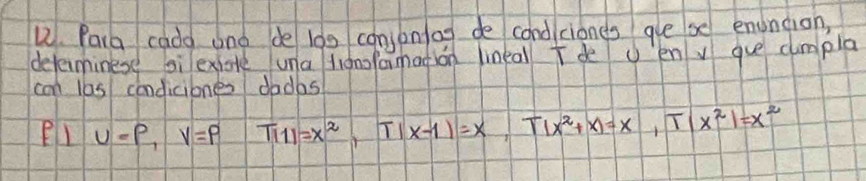 12. Para cada uno de los conjuntos de condiciones que se enuncian,
determinese si existe una transformación lineal T de U en V que cumpla
con las condiciones dadas
P) U=P, V=P T(1)=x², T(x-1)=x, T(x²+x)=x, T(x²)=x²